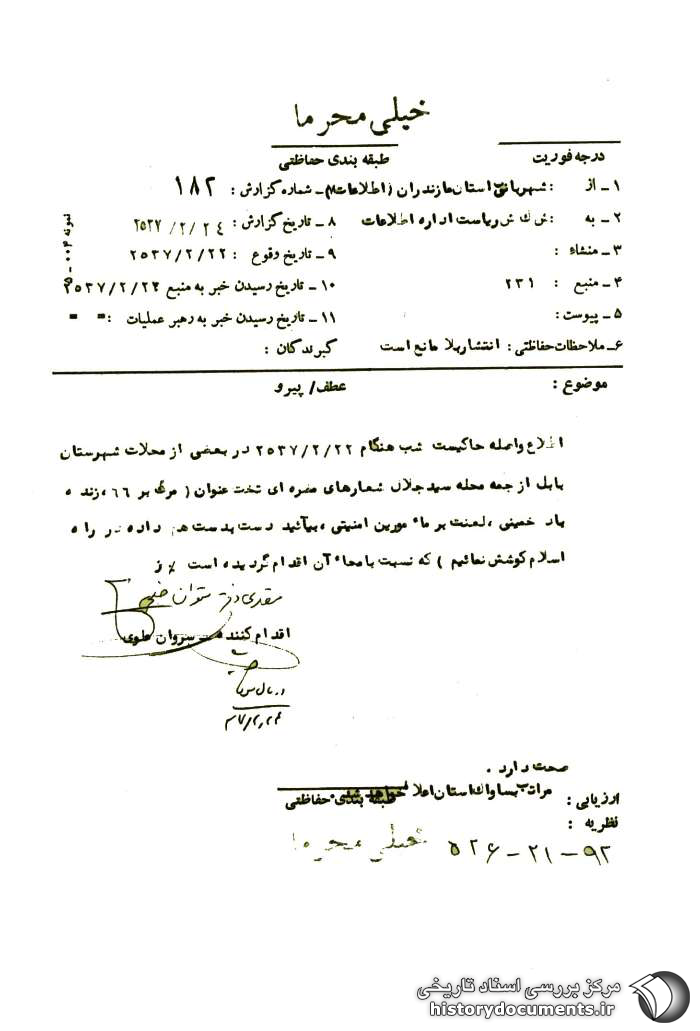 خیلی محرما
درجه فوریت
طبقه بندی حفاظتی
۱ـ از : شهربانی استان مازندران (اطلاعات) ـ شماره گزارش : ۱۸۲
۲ـ به : ش ک ش ریاست اداره اطلاعات ۸ ـ تاریخ گزارش : ۲۵۳۷/۲/۲٤
۳ـ منشاء : ۹ـ تاریخ وقوع : ۲۵۳۷/۲/۲۲
۴ـ منبع : ۲۳۱ ۱۰ـ تاریخ رسیدن خبر به منبع ۲۵۳۷/۲/۲۲
۵ـ پیوست : ۱۱ـ تاریخ رسیدن خبر به رهبر عملیات : " "
۶ـ ملاحظات حفاظتی : انتشار بلا مانع است گیرندگان :
نمونه
موضوع : عطف/ پیرو
اطلاع واصله حاکیست شب هنگام ۲۵۳۷/۲/۲۲ در بعضی از محلات شهرستان
بابل از جمه محله سید جلال شعارهای مضره ای تخت عنوان ( مرگ بر ۶۶ ، زنده
باد خمینی ، لعنت بر ماء مورین امنیتی ، بیآئید دست بدست هم داده در راه
اسلام کوشش نمائیم ) که نسبت بامحاء آن اقدام گردیده است
اقدام کننده ـ سروان علوی
۳۷/۲/۲۴
صحت دارد .
مراتب بساواک استان اعلام خواهد شد .
ارزیابی :
طبقه بندی حفاظتی
نظریه :
خیلی محرما
۵۲۶-۲۱-۹۲
مرکز بررسی اسناد تاریخی
historydocuments.ir